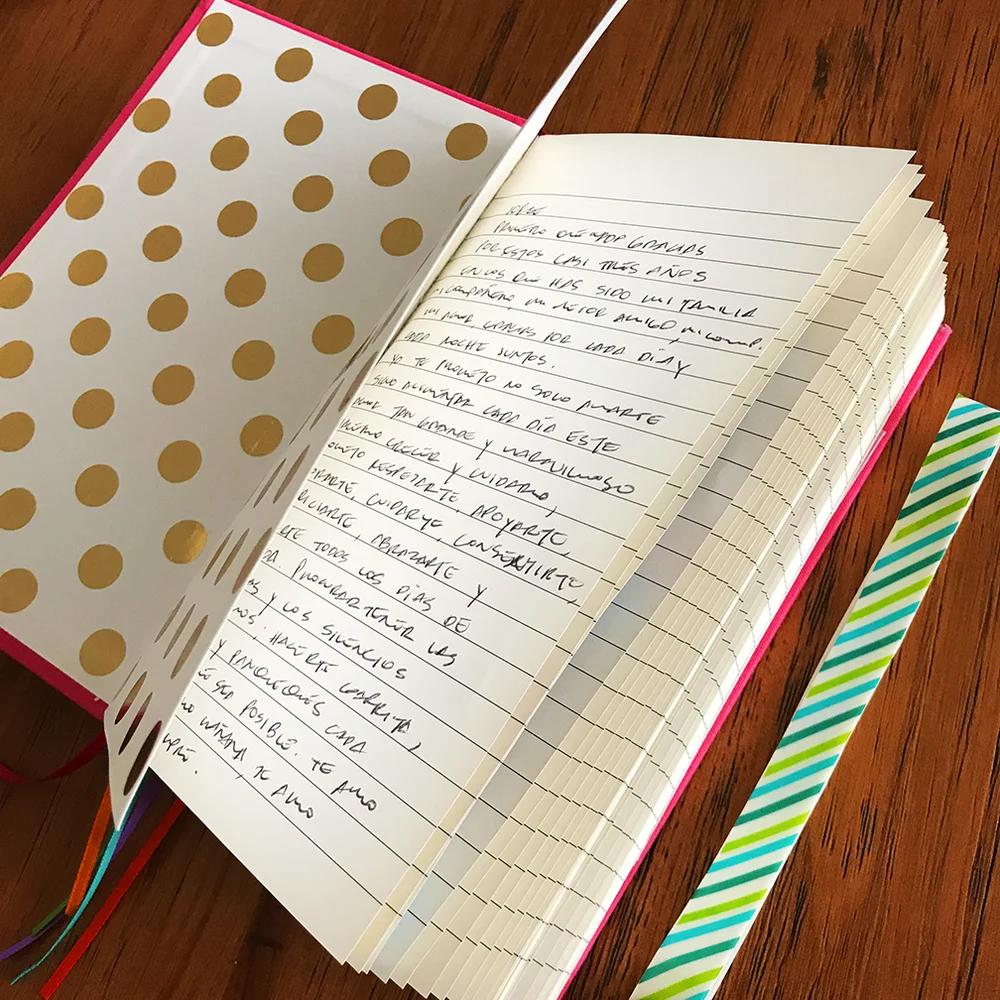 JORGE
PRIMERO QUE NADA GRACIAS
POR ESTOS CASI TRES AÑOS
EN LOS QUE HAS SIDO MI FAMILIA
MI COMPAÑERO, MI MEJOR AMIGO,
MI AMOR, GRACIAS POR CADA DÍA Y
CADA NOCHE JUNTOS.
YO TE PROMETO NO SOLO AMARTE
SINO AUMENTAR CADA DÍA ESTE
AMOR TAN GRANDE Y MARAVILLOSO
CRECER Y CUIDARLO,
RESPETARTE, APOYARTE,
CUIDARTE, CONSENTIRTE,
ABRAZARTE Y
TODOS LOS DÍAS DE
PROCURAR TENER LAS
Y LOS SILENCIOS
HACERTE GARRITA,
Y PANQUEQUES CADA
SEA POSIBLE. TE AMO
MAÑANA, TE AMO